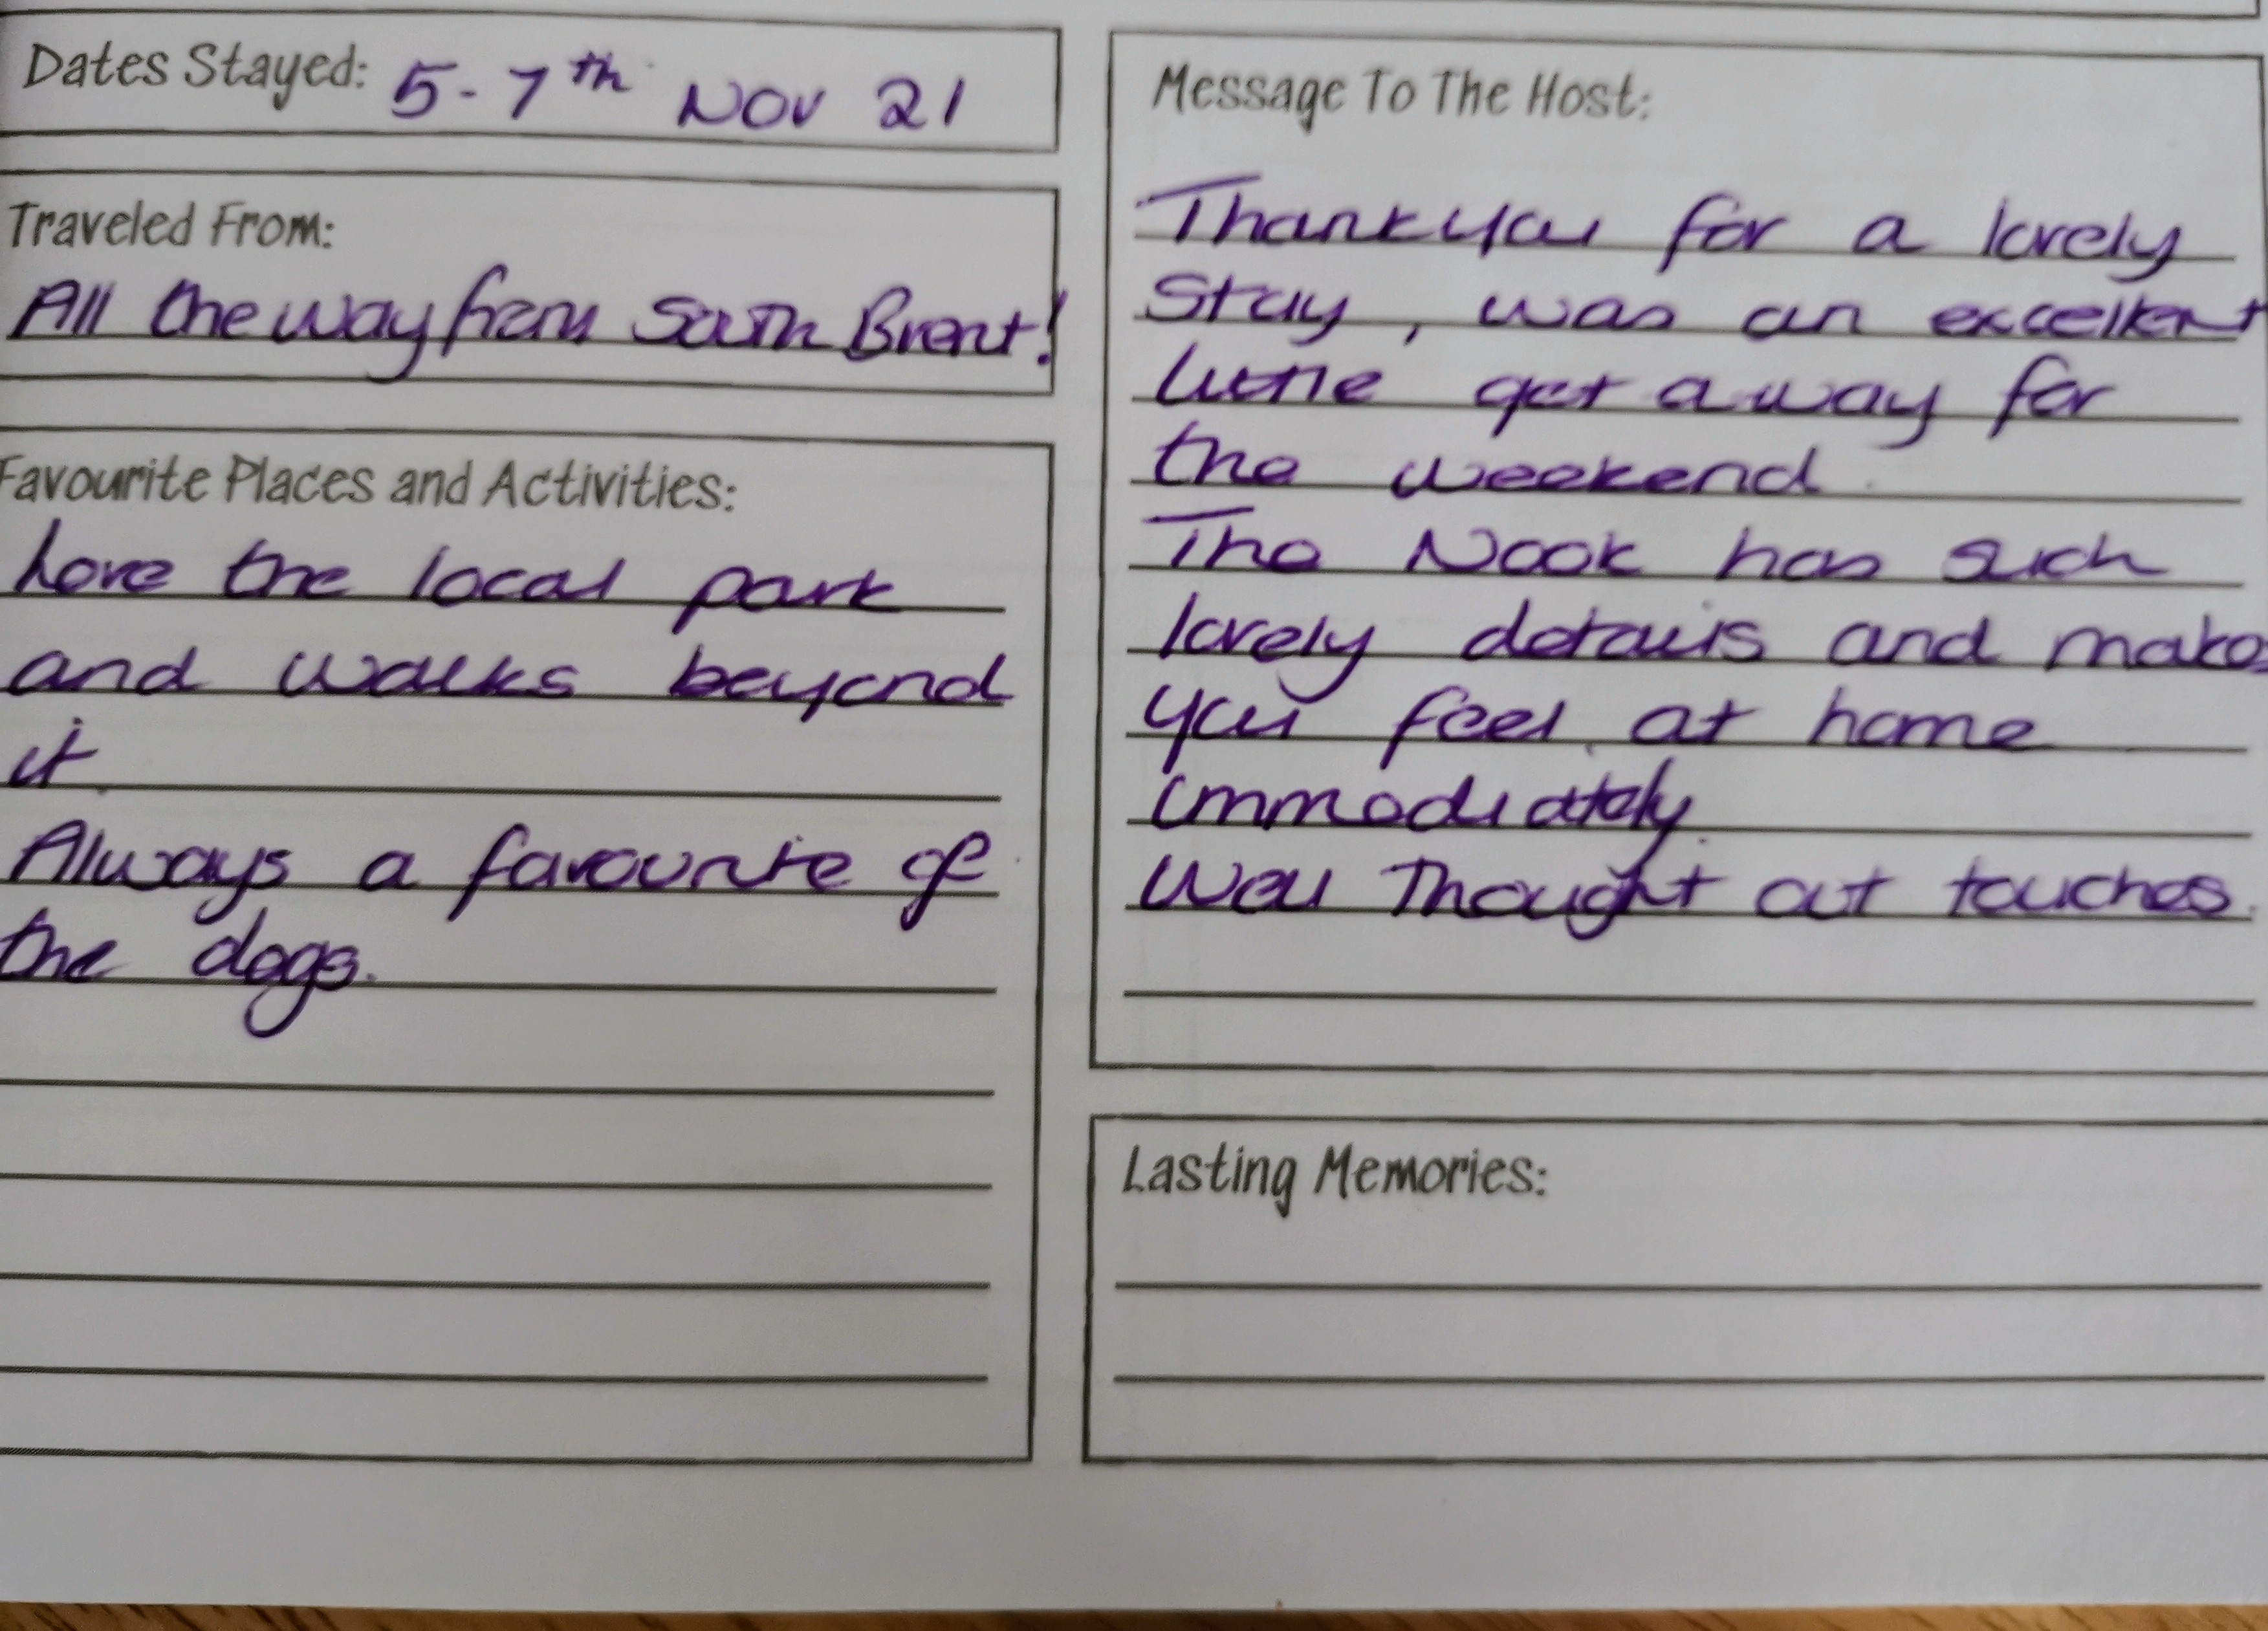 Dates Stayed: 5-7th Nov 21
Traveled From:
All the way from South Brent!
Favourite Places and Activities:
Love the local park
and walks beyond
it.
Always a favourite of
the dogs.
Message To The Host:
Thankyou for a lovely
Stay, was an excellent
little get away for
the weekend.
The Nook has such
lovely details and makes
you feel at home
immediately.
Well thought out touches.
Lasting Memories: